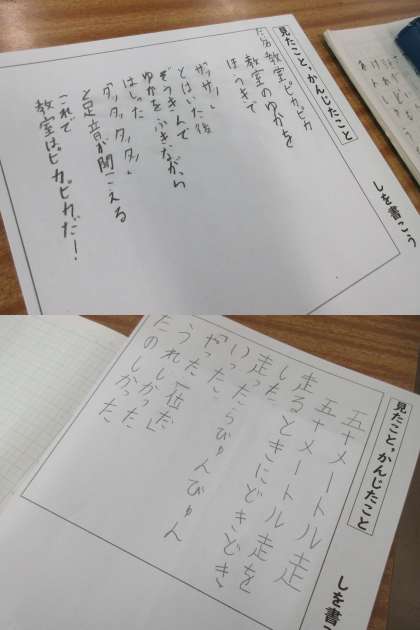 しを書こう
見たこと，かんじたこと
教室ピカピカ
教室のゆかを
ほうきで
「ザッザッ」
とはいた後
ぞうきんで
ゆかをふきながら
はしった
「タッタッタッタッ」
と足音が聞こえる
これで
教室はピカピカだ！
しを書こう
見たこと，かんじたこと
五十メートル走
五十メートル走を
走るときにどきどき
した
走った
いったらびゅんびゅん
やった
うれしかった
たのしかった